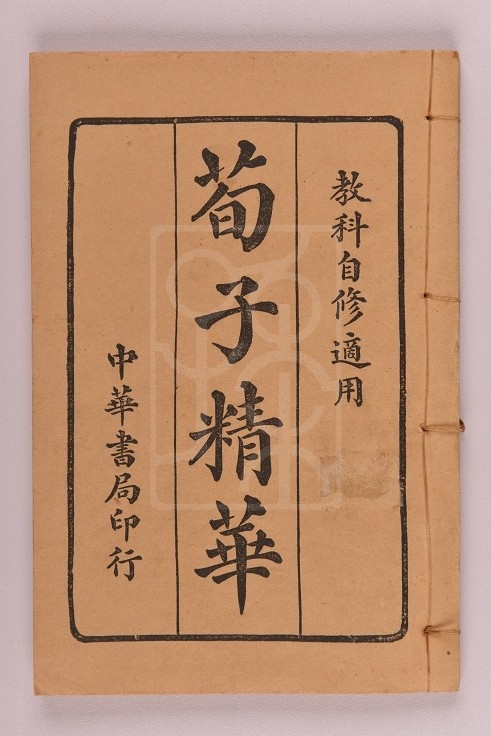 教科自修適用
荀子精華
中華書局印行